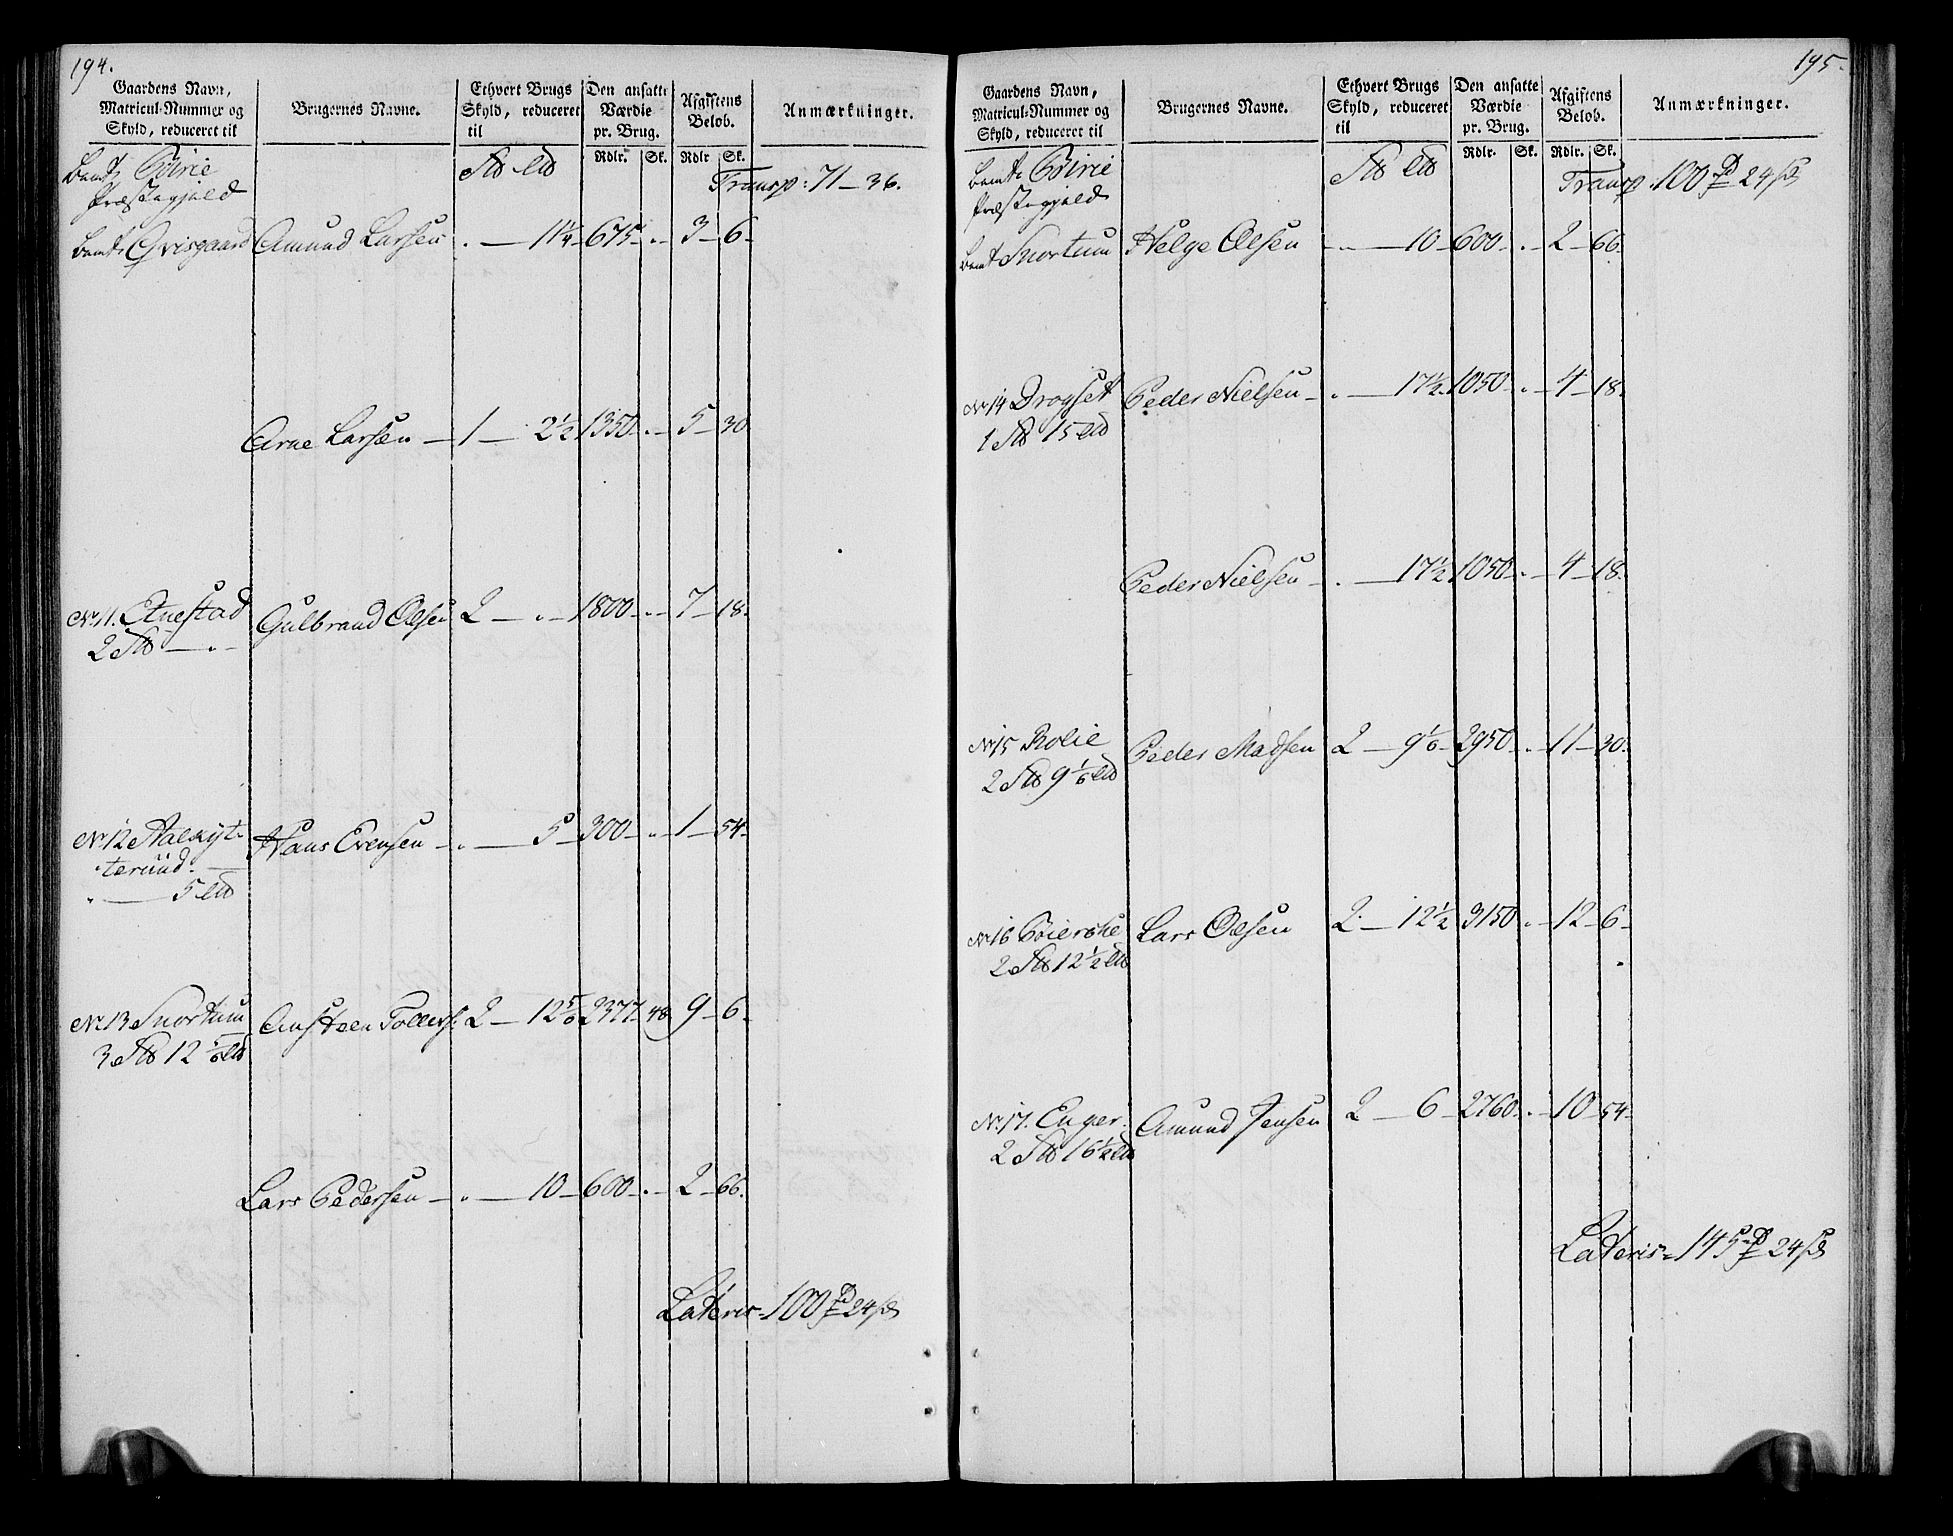 194.
Gaardens Navn, Matricul-Nummer og Skyld, reduceret til
Brugernes Navne.
Ethvert Brugs Skyld, reduceret til
Den ansatte Værdie pr. Brug.
Afgiftens Beløb.
Anmærkninger.
Rdlr. Sk. Rdlr Sk.
Præstegjeld
Transp: 71 — 36.
Amund Larsen . — 11¼ — 675 — .. — 3 — 6 —
Arne Larsen — 1 — 2½ 1350 — .. — 5 — 30
No 11. Gulbrand Olsen 2 — .. — 1800 — .. — 7 — 18.
2 — .. —
No 12 Hans Evensen — . — 5 — 300 — .. — 1 — 54 —
terüüd.
. — 5
No 13 Snortum 2 — 12 5/6 2377 — 48 9 — 6 —
3 12 1/6
Lars Pedersen — . — 10 — 600 — . — 2 — 66.
Lateris = 100 24
195.
Gaardens Navn, Matricul-Nummer og Skyld, reduceret til
Brugernes Navne.
Ethvert Brugs Skyld, reduceret til
Den ansatte Værdie pr. Brug.
Afgiftens Beløb.
Anmærkninger.
Rdlr. Sk. Rdlr. Sk.
Præstegjeld
Transp. 100 24
Snortum Helge Olsen — .. — 10 — 600 — . — 2 — 66
No 14 Drogset Peder Nielsen — . — 17½ 1050 — . — 4 — 18
1 15
Peder Nielsen — . — 17½ 1050 — . — 4 — 18.
No 15 Rolie Peder Madsen 2 — 9 1/6 — 2950 — . — 11 — 30.
2 9 1/6
No 16 Lars Olsen 2 — 12½ 3150 . — 12 — 6 —
2 12½
No 17. Enger. Amund Jensen 2 — 6 — 2760 — . — 10 — 54 —
2 16½
Lateris = 145 24